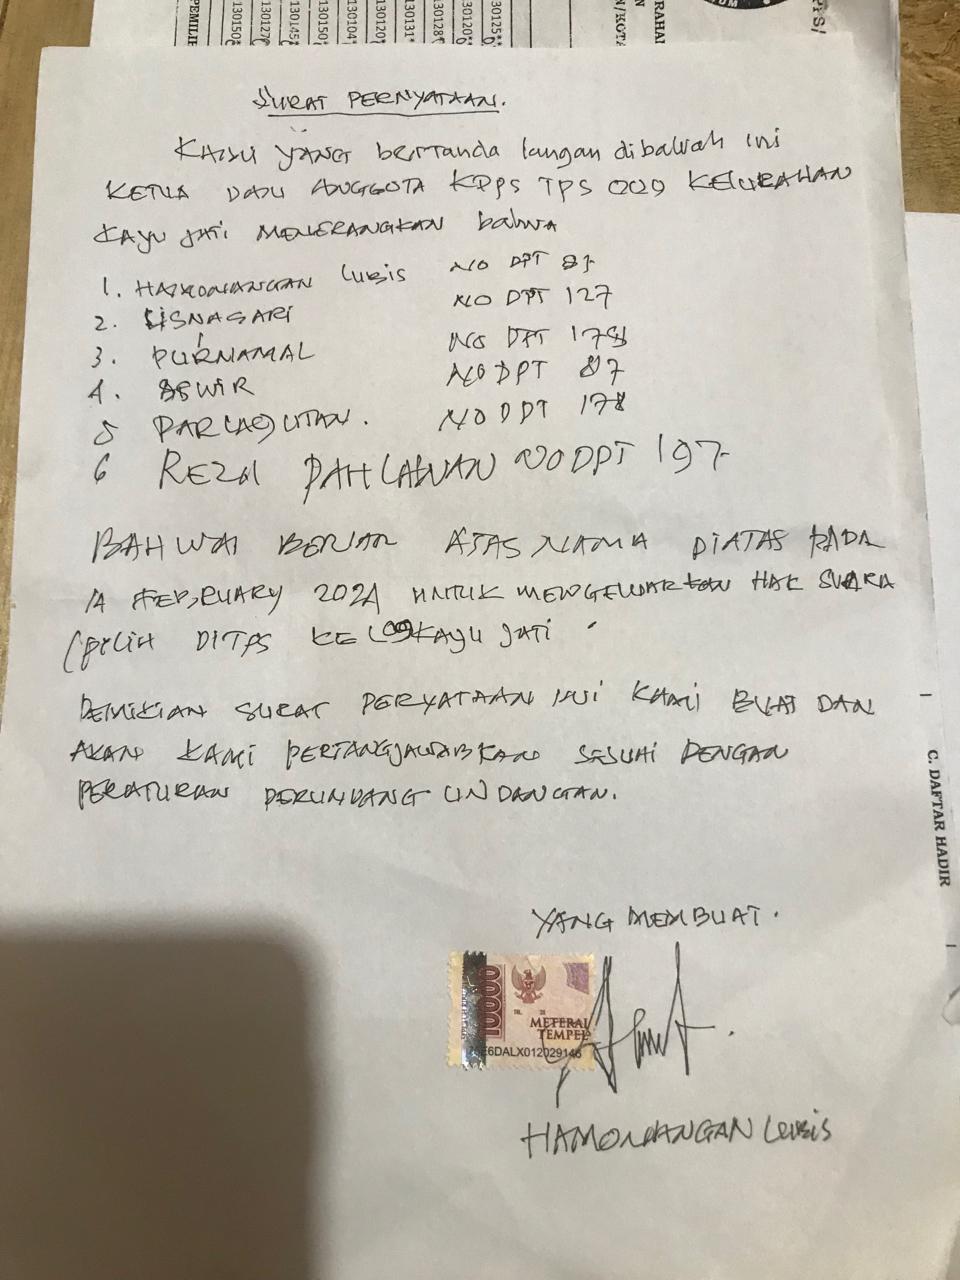 PEMILIH
130150*
130127*
130145*
130150*
130104*
130120*
130131*
130128*
130120*
130125**
SURAT PERNYATAAN.
KAMI YANG bertanda tangan dibawah ini
KETUA DAN ANGGOTA KPPS TPS 009 KELURAHAN
KAYU JATI MENERANGKAN bahwa
1. HAMONANGAN LUBIS NO DPT 87
2. LISNASARI NO DPT 127
3. PURNAMAL NO DPT 178
4. ASWIR NO DPT 87
5 PARLAGUTAN. NO DPT 178
6 REZA PAHLAWAN NO DPT 197
BAHWA BENAR ATAS NAMA DIATAS PADA
14 FEBRUARY 2024 UNTUK MENGELUARKAN HAK SUARA
/PILIH DITPS KEL 09 KAYU JATI
DEMIKIAN SURAT PERYATAAN INI KAMI BUAT DAN
AKAN KAMI PERTANGJAWABKAN SESUAI DENGAN
PERATURAN PERUNDANG UNDANGAN.
YANG MEMBUAT.
10000
METERAI
TEMPEL
E6DALX012029146
HAMONANGAN LUBIS
C. DAFTAR HADIR